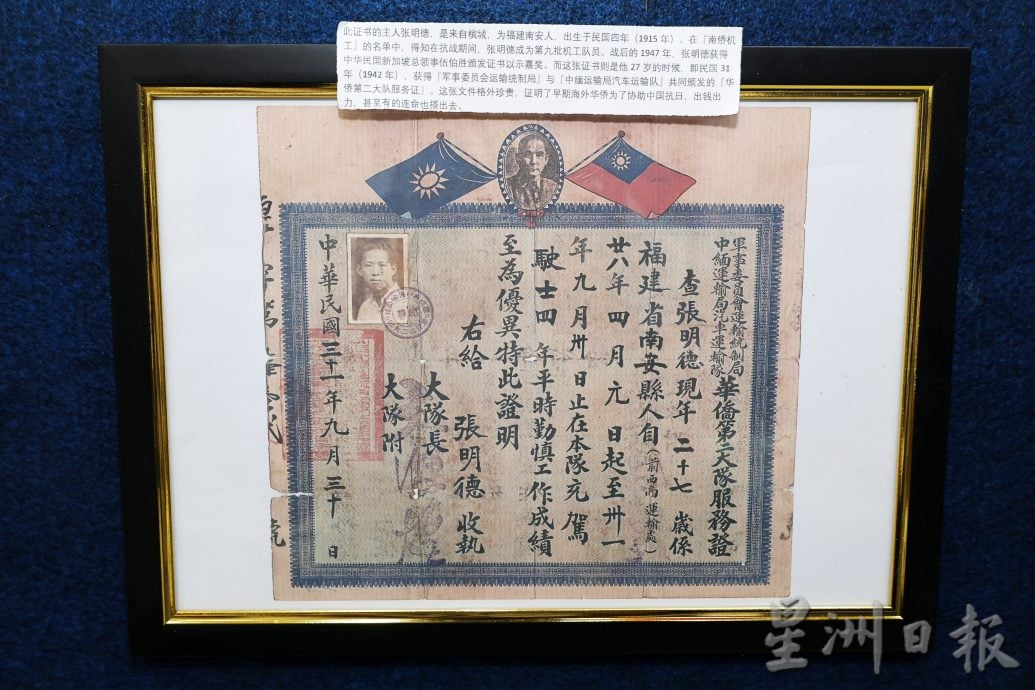 此证书的主人张明德，是来自槟城，为福建南安人，出生于民国四年（1915 年）。在『南侨机
工』的名单中，得知在抗战期间，张明德成为第九批机工队员。战后的 1947 年，张明德获得
中华民国新加坡总领事伍伯胜颁发证书以示嘉奖。而这张证书则是他 27 岁的时候，即民国 31
年（1942 年），获得『军事委员会运输统制局』与『中缅运输局汽车运输队』共同颁发的『华
侨第二大队服务证』。这张文件格外珍贵，证明了早期海外华侨为了协助中国抗日，出钱出
力，甚至有的连命也搭出去。
軍事委員會運輸統制局
中緬運輸局汽車運輸隊
華僑第二大隊服務證
查張明德現年二十七歲係
福建省南安縣人自（前西南運輸處）
廿八年四月元日起至卅一
年九月卅日止在本隊充駕
駛士四年平時勤慎工作成績
至為優異特此證明
右給 張明德 收執
大隊長
大隊附
中華民國三十一年九月三十日
號
星洲日報